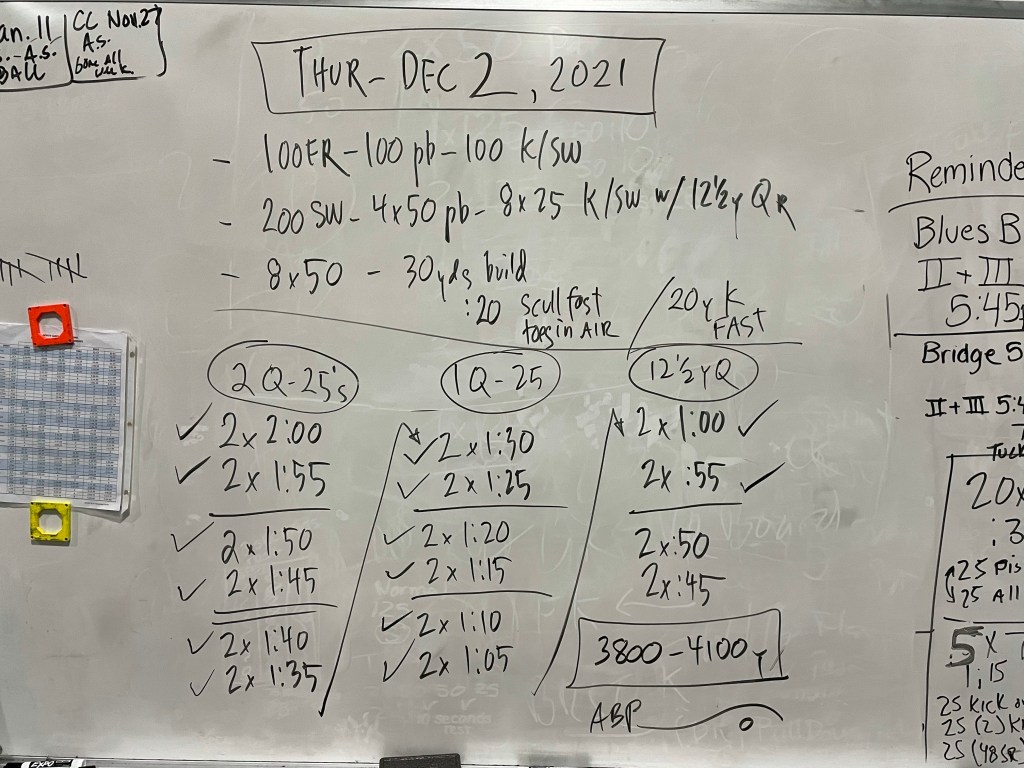 an. 11
A.S.
ALL
CC Nov. 27
A.S.
gone all
week
THUR - DEC 2, 2021
- 100FR - 100 pb - 100 K/SW
- 200 SW - 4x50 pb - 8x25 K/SW w/ 12½y QR
- 8x50 - 30yds build
:20 scull fast
toes in AIR
20y K
FAST
2 Q-25's
✓ 2x 2:00
✓ 2x 1:55
✓ 2x 1:50
✓ 2x 1:45
✓ 2x 1:40
✓ 2x 1:35
1Q-25
✓ 2x 1:30
✓ 2x 1:25
✓ 2x 1:20
✓ 2x 1:15
✓ 2x 1:10
✓ 2x 1:05
12½yQ
2x 1:00 ✓
2x :55 ✓
2x :50
2x :45
3800 - 4100y
ABP
Reminde
Blues B
II + III
5:45
Bridge 5
II + III 5:4
Tuck
20x
:3
25 Pis
25 All
5x
1:15
25 Kick o
25 (2) K
25 (48SR
EXPO